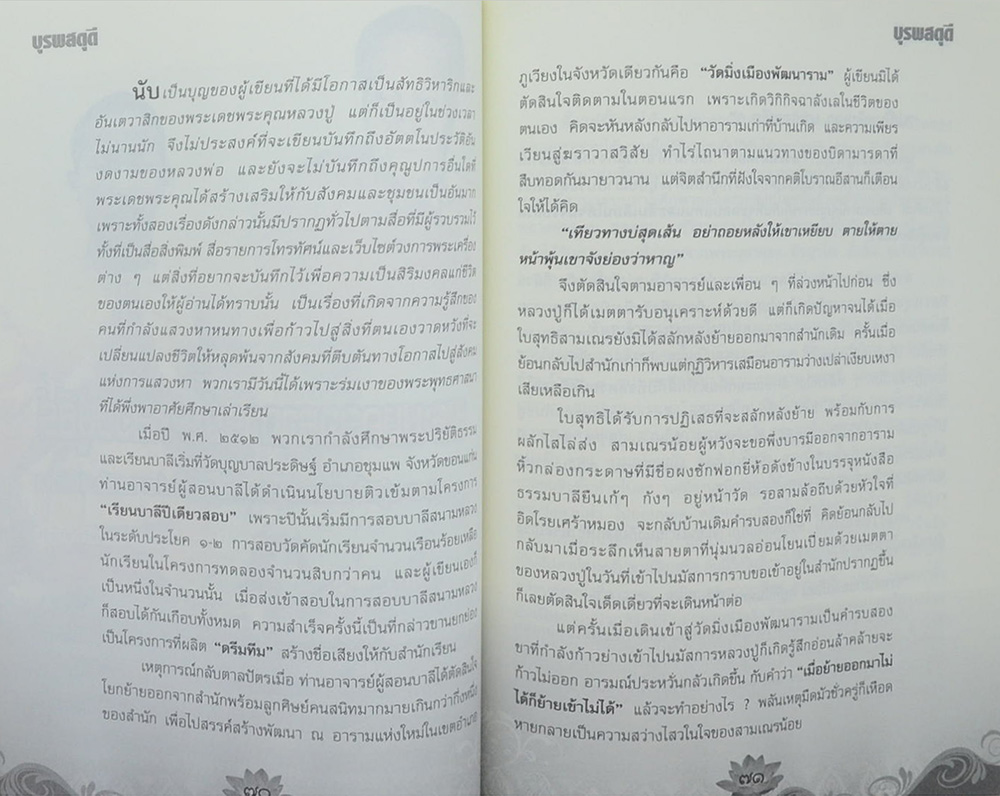 บูรพสดุดี
นับ เป็นบุญของผู้เขียนที่ได้มีโอกาสเป็นสัทธิวิหาริกและ
อันเตวาสิกของพระเดชพระคุณหลวงปู่ แต่ก็เป็นอยู่ในช่วงเวลา
ไม่นานนัก จึงไม่ประสงค์ที่จะเขียนบันทึกถึงอัตตโนประวัติอัน
งดงามของหลวงพ่อ และยังจะไม่บันทึกถึงคุณูปการอื่นใดที่
พระเดชพระคุณได้สร้างเสริมให้กับสังคมและชุมชนเป็นอันมาก
เพราะทั้งสองเรื่องดังกล่าวนั้นมีปรากฏทั่วไปตามสื่อที่มีผู้รวบรวมไว้
ทั้งที่เป็นสื่อสิ่งพิมพ์ สื่อรายการโทรทัศน์และเว็บไซต์วงการพระเครื่อง
ต่าง ๆ แต่สิ่งที่อยากจะบันทึกไว้เพื่อความเป็นสิริมงคลแก่ชีวิต
ของตนเองให้ผู้อ่านได้ทราบนั้น เป็นเรื่องที่เกิดจากความรู้สึกของ
คนที่กำลังแสวงหาหนทางเพื่อก้าวไปสู่สิ่งที่ตนเองวาดหวังที่จะ
เปลี่ยนแปลงชีวิตให้หลุดพ้นจากสังคมที่ตีบตันทางโอกาสไปสู่สังคม
แห่งการแสวงหา พวกเรามีวันนี้ได้เพราะร่มเงาของพระพุทธศาสนา
ที่ได้พึ่งพาอาศัยศึกษาเล่าเรียน
เมื่อปี พ.ศ. ๒๕๑๒ พวกเรากำลังศึกษาพระปริยัติธรรม
และเรียนบาลีเริ่มที่วัดบุญบาลประดิษฐ์ อำเภอชุมแพ จังหวัดขอนแก่น
ท่านอาจารย์ผู้สอนบาลีได้ดำเนินนโยบายติวเข้มตามโครงการ
“เรียนบาลีปีเดียวสอบ” เพราะปีนั้นเริ่มมีการสอบบาลีสนามหลวง
ในระดับประโยค ๑-๒ การสอบวัดคัดนักเรียนจำนวนเรือนร้อยเหลือ
นักเรียนในโครงการทดลองจำนวนสิบกว่าคน และผู้เขียนเองก็
เป็นหนึ่งในจำนวนนั้น เมื่อส่งเข้าสอบในการสอบบาลีสนามหลวง
ก็สอบได้กันเกือบทั้งหมด ความสำเร็จครั้งนี้เป็นที่กล่าวขานยกย่อง
เป็นโครงการที่ผลิต “ดรีมทีม” สร้างชื่อเสียงให้กับสำนักเรียน
เหตุการณ์กลับตาลปัตรเมื่อ ท่านอาจารย์ผู้สอนบาลีได้ตัดสินใจ
โยกย้ายออกจากสำนักพร้อมลูกศิษย์คนสนิทมากมายเกินกว่ากึ่งหนึ่ง
ของสำนัก เพื่อไปสรรค์สร้างพัฒนา ณ อารามแห่งใหม่ในเขตอำเภอ
๗๐
บูรพสดุดี
ภูเวียงในจังหวัดเดียวกันคือ “วัดมิ่งเมืองพัฒนาราม” ผู้เขียนมิได้
ตัดสินใจติดตามในตอนแรก เพราะเกิดวิกิกิจฉาลังเลในชีวิตของ
ตนเอง คิดจะหันหลังกลับไปหาอารามเก่าที่บ้านเกิด และความเพียร
เวียนสู่ฆราวาสวิสัย ทำไร่ไถนาตามแนวทางของบิดามารดาที่
สืบทอดกันมายาวนาน แต่จิตสำนึกที่ฝังใจจากคติโบราณอีสานก็เตือน
ใจให้ได้คิด
“เทียวทางบ่สุดเส้น อย่าถอยหลังให้เขาเหยียบ ตายให้ตาย
หน้าพุ้นเขาจังย่องว่าหาญ”
จึงตัดสินใจตามอาจารย์และเพื่อน ๆ ที่ล่วงหน้าไปก่อน ซึ่ง
หลวงปู่ก็ได้เมตตารับอนุเคราะห์ด้วยดี แต่ก็เกิดปัญหาจนได้เมื่อ
ใบสุทธิสามเณรยังมิได้สลักหลังย้ายออกมาจากสำนักเดิม ครั้นเมื่อ
ย้อนกลับไปสำนักเก่าก็พบแต่กุฏิวิหารเสมือนอารามว่างเปล่าเงียบเหงา
เสียเหลือเกิน
ใบสุทธิได้รับการปฏิเสธที่จะสลักหลังย้าย พร้อมกับการ
ผลักไสไล่ส่ง สามเณรน้อยผู้หวังจะขอพึ่งบารมีออกจากอาราม
หิ้วกล่องกระดาษที่มีชื่อผงซักฟอกยี่ห้อดังข้างในบรรจุหนังสือ
ธรรมบาลียืนเก้ๆ กังๆ อยู่หน้าวัด รอสามล้อถีบด้วยหัวใจที่
อิดโรยเศร้าหมอง จะกลับบ้านเดิมคำรบสองก็ใช่ที่ คิดย้อนกลับไป
กลับมาเมื่อระลึกเห็นสายตาที่นุ่มนวลอ่อนโยนเปี่ยมด้วยเมตตา
ของหลวงปู่ในวันที่เข้าไปนมัสการกราบขอเข้าอยู่ในสำนักปรากฏขึ้น
ก็เลยตัดสินใจเด็ดเดี่ยวที่จะเดินหน้าต่อ
แต่ครั้นเมื่อเดินเข้าสู่วัดมิ่งเมืองพัฒนารามเป็นคำรบสอง
ขาที่กำลังก้าวย่างเข้าไปนมัสการหลวงปู่ก็เกิดรู้สึกอ่อนล้าคล้ายจะ
ก้าวไม่ออก อารมณ์ประหวั่นกลัวเกิดขึ้น กับคำว่า “เมื่อย้ายออกมาไม่
ได้ก็ย้ายเข้าไม่ได้” แล้วจะทำอย่างไร ? พลันเหตุมืดมัวชั่วครู่ก็เหือด
หายกลายเป็นความสว่างไสวในใจของสามเณรน้อย
๗๑